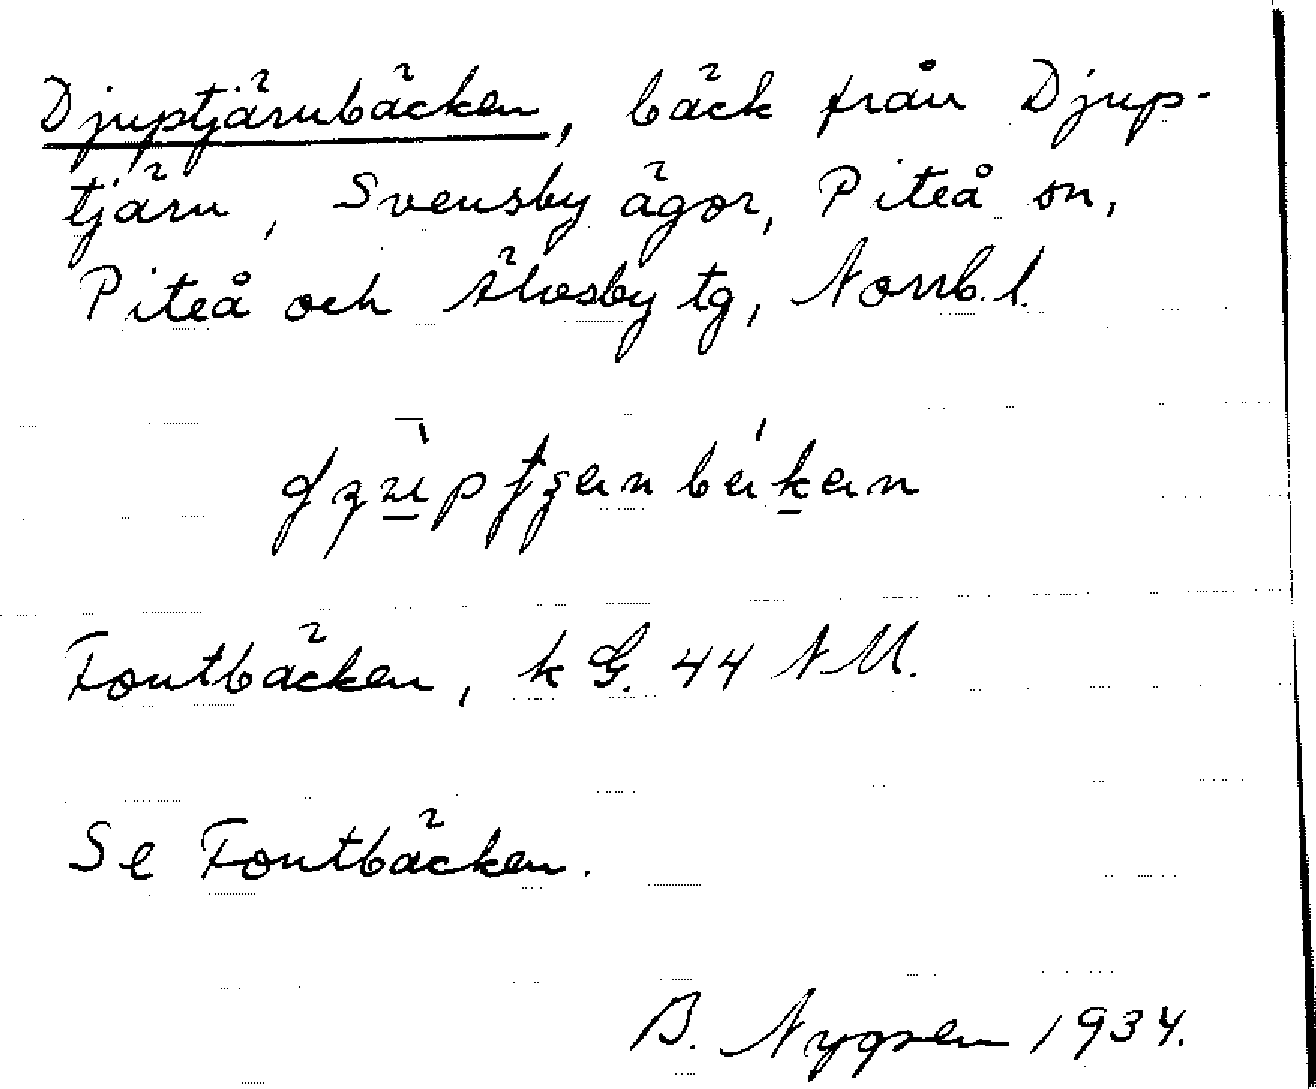 Djuptjärnbäcken, bäck från Djup-
tjärn, Svensby ägor, Piteå sn,
Piteå och Älvsby tg, Norrb. l.
Fontbäcken, k G. 44 N M.
Se Fontbäcken.
B. Nygren 1934.